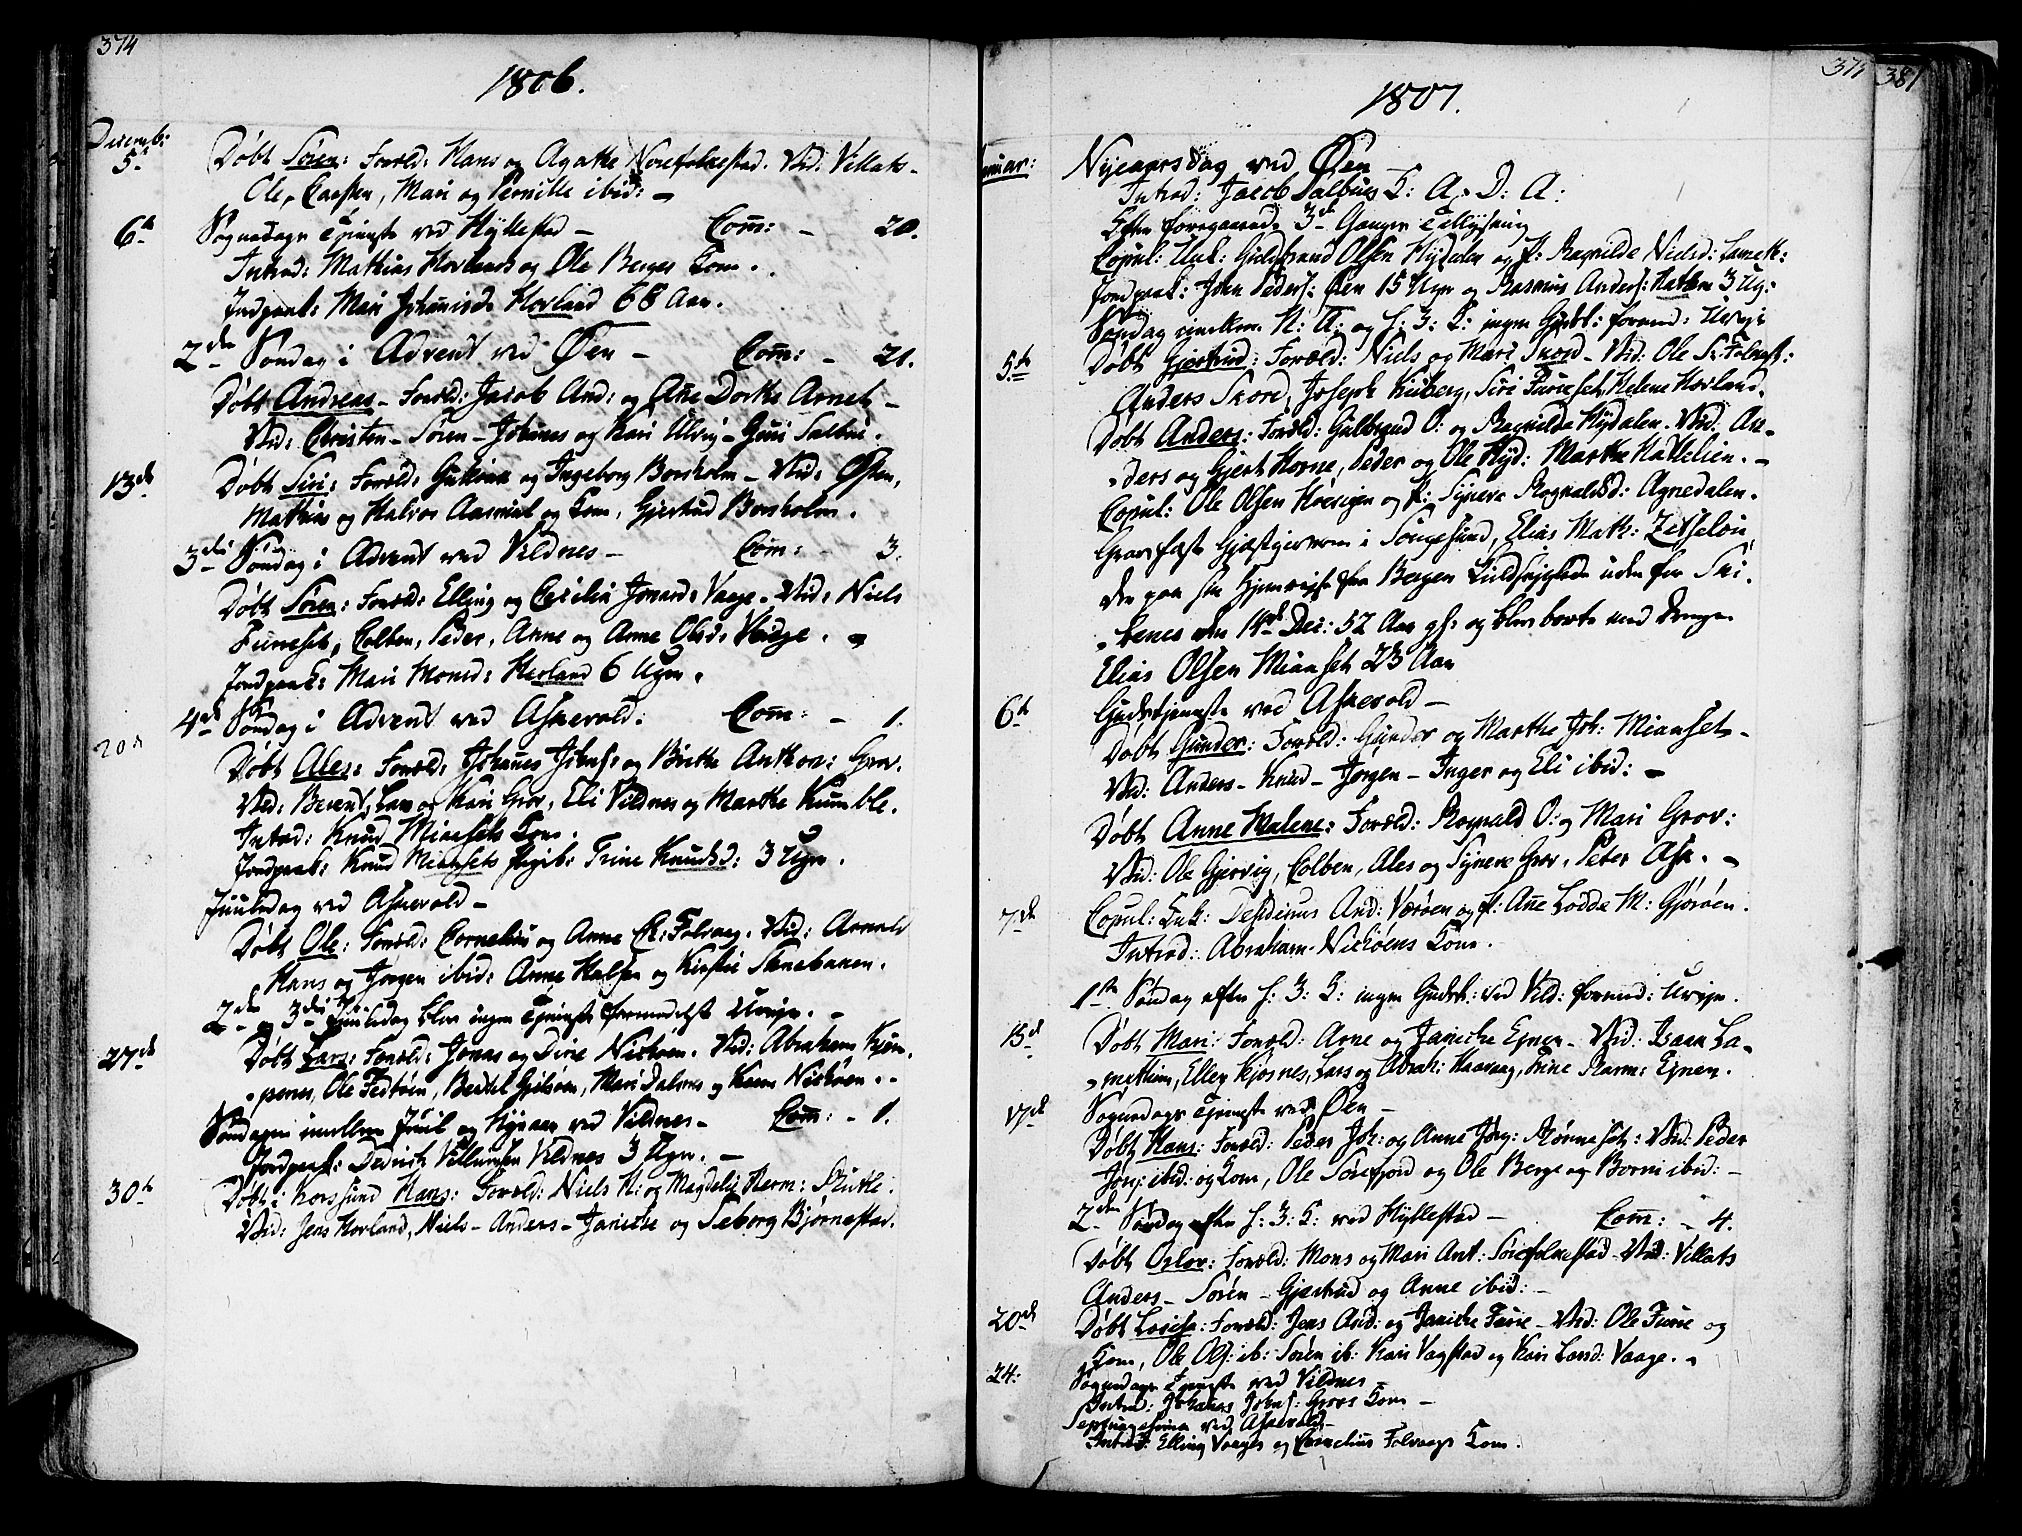 374
1806.
Decemb:
5te Døbt Søren: Foræld: Hans og Agathe Norefolkestad. Vid: Villats-
Ole, Carsten, Mari og Pernille ibid: –
6te Sognedags Tjeneste ved Hyllestad – Com̄: – 20.
Introd: Mathias Hovlands og Ole Berges Kone.
Jordpaak: Mari Johannisd: Hovland 68 Aar.
2den Søndag i Advent ved Øen – Com̄: – 21.
Døbt Andreas – Foræld: Jacob And: og Ane Dorthe Arnet –
Vid: Christen – Søren – Johannes og Kari Ulvig – Guri Salbue.
13de Døbt Siri: Foræld: Gulvina og Ingeborg Borsholm – Vid: Østen,
Mathias og Halvor Aasmul og Kone, Gjertrud Borsholm.
3die Søndag i Advent ved Vildnes – Com: – 3.
Døbt Søren: Foræld: Elling og Cecilia Jonasd: Vaage. Vid: Niels
Furneset, Colben, Peder, Anne og Anne Olsd: Vaage. –
Jordpaak: Mari Monsd: Hovland 6 Uger.
20de 4de Søndag i Advent ved Askevold: Com̄: – 1.
Døbt Ales: Foræld: Johannes Johns: og Brithe Anthon: Grov.
Vid: Berent, Lars og Kari Grov, Eli Vildnes og Marthe Kumble.
Introd: Knud Miansets Kone.
Jordpaak: Knud Miansets Pigib: Trine Knudsd: 3 Uger.
Juuledag ved Askevold –
Døbt Ole: Foræld: Cornelius og Anne Ch: Folvaag. Vid: Arnold
Hans og Jørgen ibid: Anne Halsen og Kirstie Stenebakken.
2den og 3die Juuledag blev ingen Tjeneste formedelst Uveyr. –
27de Døbt Lars: Foræld: Jonas og Dirie Nichøen. Vid: Abraham Kjem-
penes, Ole Fedtøen, Bertel Gjelsøen, Mari Dalenes og Karen Nichøen. –
Søndagen imellem Juul og Nyeaar ved Vildnes – Com̄: – 1.
Jordpaak: Dedrich Villumsen Vildnes 3 Uger. –
30te Døbt i Korssund Hans: Foræld: Niels N: og Magdeli Herm: Rutle.
Vid: Jens Hovland, Niels – Anders – Janiche og Seborg Bjørnestad.
375
381
1807.
nuar: Nyeaarsdag ved Øen
Introd: Jacob Salbues K: A. D: A:
Efter foregaaende 3de Ganger Tillysning
Copul: Unk: Guldbrand Olsen Hydalen og P: Ragnilde Nielsd: Lamek:
Jordpaak: John Peders: Øen 15 Uger og Rasmus Anders: Hatlem 3 Ug:
Søndag imellem N: A: og H: 3: K: ingen Gudst: formed: Uveyr
5te Døbt Gjertrud: Foræld: Niels og Mari Skord – Vid: Ole Sr: Folkest:
Anders Skord, Joseph Kuberg, Siri Furneset, Helene Hovland.
Døbt Anders: Foræld: Gulbrand O: og Ragnilde Hydalen. Vid: An-
ders og Gjert Horne, Peder og Ole Hyd: Marthe Hatlelien. –
Copul: Ole Olsen Hoevigen og P: Synneve Rognaldsd: Agnedalen.
Gravfæst Gjæstgiveren i Songesund, Elias Math: Zetseløv,
der paa sin Hjemreyse fra Bergen Kuldseglede uden for Ski-
lenes den 14de Dec: 52 Aar gl: og blev borte med Drengen
Elias Olsen Mianset 23 Aar
6te Gudstjeneste ved Askevold –
Døbt Gunder: Foræld: Gunder og Marthe Joh: Mianset –
Vid: Anders – Knud – Jørgen – Inger og Eli ibid: –
Døbt Anne Malene: Foræld: Rognald O: og Mari Grov:
Vid: Ole Gjervig, Colben, Ales og Synneve Grov, Peter Ask. –
7de Copul: Unk: Desiderius And: Værøen og P: Ane Lodde M: Gjørøen.
Introd: Abraham Nichøens Kone.
1ste Søndag efter H: 3: K: ingen Gudst: ved Vild: formed: Uveyr.
15de Døbt Mari: Foræld: Arne og Janiche Egnen – Vid: Isaac La-
metthun, Ellen Kjosnes, Lars og Abrah: Haavaag, Trine Rasm: Egnen.
17de Sognedags Tjeneste ved Øen –
Døbt Hans: Foræld: Peder Joh: og Anne Jørg: Rønneset: Vid: Peder
Jørg: ibid: og Kone, Ole Sørefjord og Ole Berge og Borni ibid: –
2den Søndag efter H: 3: K: ved Hyllestad – Com̄: – 4.
Døbt Oslov: Foræld: Mons og Mari Ant: Sørefolkestad – Vid: Villats
Anders – Søren – Gjertrud og Anne ibid: –
20de Døbt Lovise: Foræld: Jens And: og Janiche Furie – Vid: Ole Furie og
Kone, Ole Ols: ib: Søren ib: Kari Vagstad og Kari Larsd: Vaage. –
24: Sognedags Tjeneste ved Vildnes –
Introd: Johannes Johns: Grovs Kone –
Septuagesima ved Askevold –
Introd: Elling Vaages og Cornelius Folvaags Kone.